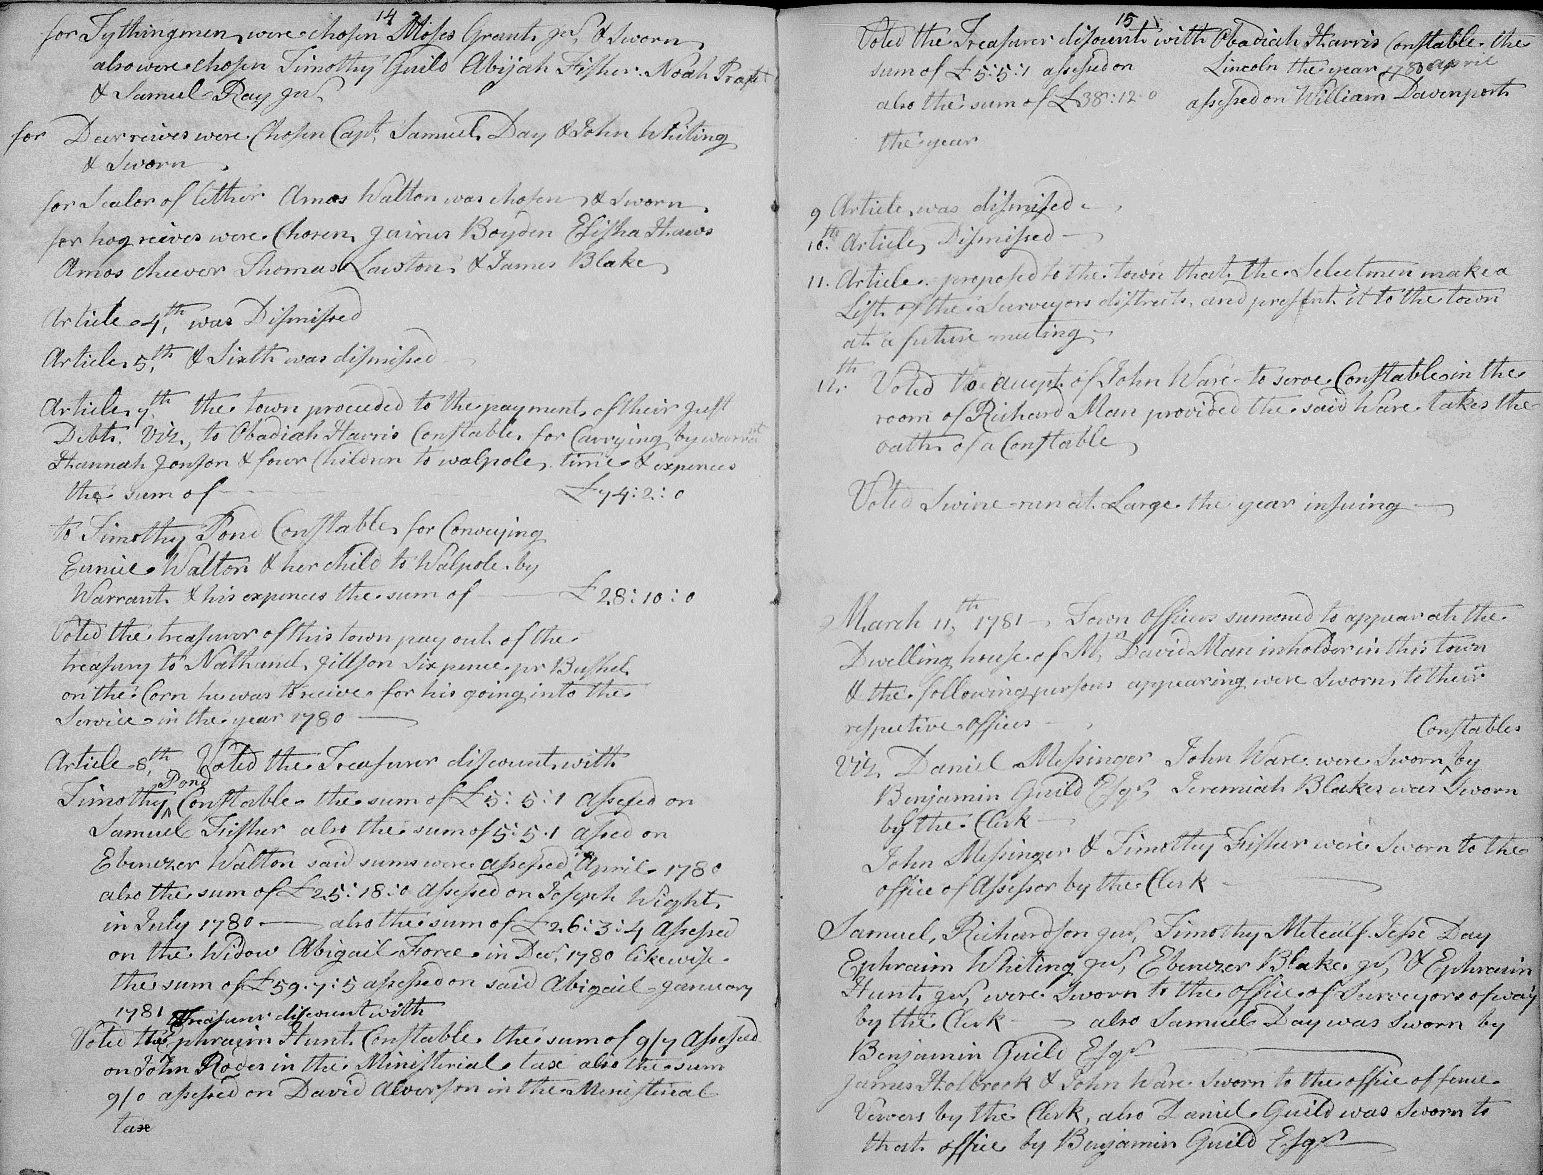 14
for Tythingmen, were chosen Moses Grant jur, & Sworn
also were chosen Timothy Guild Abijah Fisher Noah Pratt
& Samuel Ray jur
for Deer reives were Chosen Capt Samuel Day & John Whiting
& Sworn
for Sealer of lether Amos Walton was chosen & Sworn
for hog reives were Chosen, Jairus Boyden Elisha Haws
Amos cheever Thomas Lawton & James Blake
Article 4,th was Dismissed
Article 5,th & Sixth was dismissed
Article, 7th the town proceded to the payment of their just
Debts, Viz, to Obadiah Harris Constable, for Carrying by warrant
Hannah Jonson & four Children to walpole time & expences
the sum of £74:2:0
to Timothy Pond Constable for Conveying
Eunice Walton & her child to Walpole by
Warrant & his expences the sum of £28:10:0
Voted the treasurer of this town pay out of the
treasury to Nathanel, Jillson Six pence pr Bushel
on the Corn he was to receive for his going into the
Service in the year 1780
Article 8,th Voted the Treasurer discount with
Timothy Pond Constable the sum of £5:5:1 assessed on
Samuel Fisher also the sum of 5:5:1 assed on
Ebenezer Walton said sums were assessed April 1780
also the sum of £25:18:0 assessed on Joseph Wight,
in July 1780 also the sum of £26:3:4 Assessed
on the Widow Abigail Force in Decr, 1780 likewise
the sum of £59:7:5 assessed on said Abigail January
1781
Treasurer discount with
Voted the Ephraim Hunt Constable the sum of 9/7 Assessed
on John Roger in the Ministerial tax also the sum
9/0 assessed on David Alverson in the Ministerial
tax
15
Voted the Treasurer discount with Obadiah Harris Constable the
sum of £5:5:1 assessed on Lincoln the year 1780 April
also the sum of £38:12:0 assessed on William Davenport
the year
9 Article was dismissed
10th Article, Dismissed
11. Article proposed to the town that the Selectmen make a
List of the Surveyors districts, and present it to the town
at a future meeting
12th Voted to accept of John Ware to serve Constable in the
room of Richard Man provided the said Ware takes the
oath of a Constable
Voted Swine run at Large the year insuing
March 11,th 1781 Town officers summoned to appear at the
Dwelling house of Mr David Man inholder in this town
& the following persons appearing were Sworn, to their
respective offices
Constables
Viz, Daniel Messinger John Ware were Sworn by
Benjamin Guild Esqr, Jeremiah Blake was Sworn
by the Clerk
John Messinger & Timothy Fisher were Sworn to the
office of Assessor by the Clerk
Samuel, Richardson jur, Timothy Metcalf Jesse Day
Ephraim Whiting jur, Ebenezer Blake jr, & Ephraim
Hunt jur, were Sworn to the office of Surveyors of way
by the Clerk also Samuel Day was Sworn by
Benjamin Guild Esqr
James Holbrook & John Ware Sworn to the office of fence
Viewers by the Clerk, also Daniel Guild was Sworn to
that office by Benjamin Guild Esqr